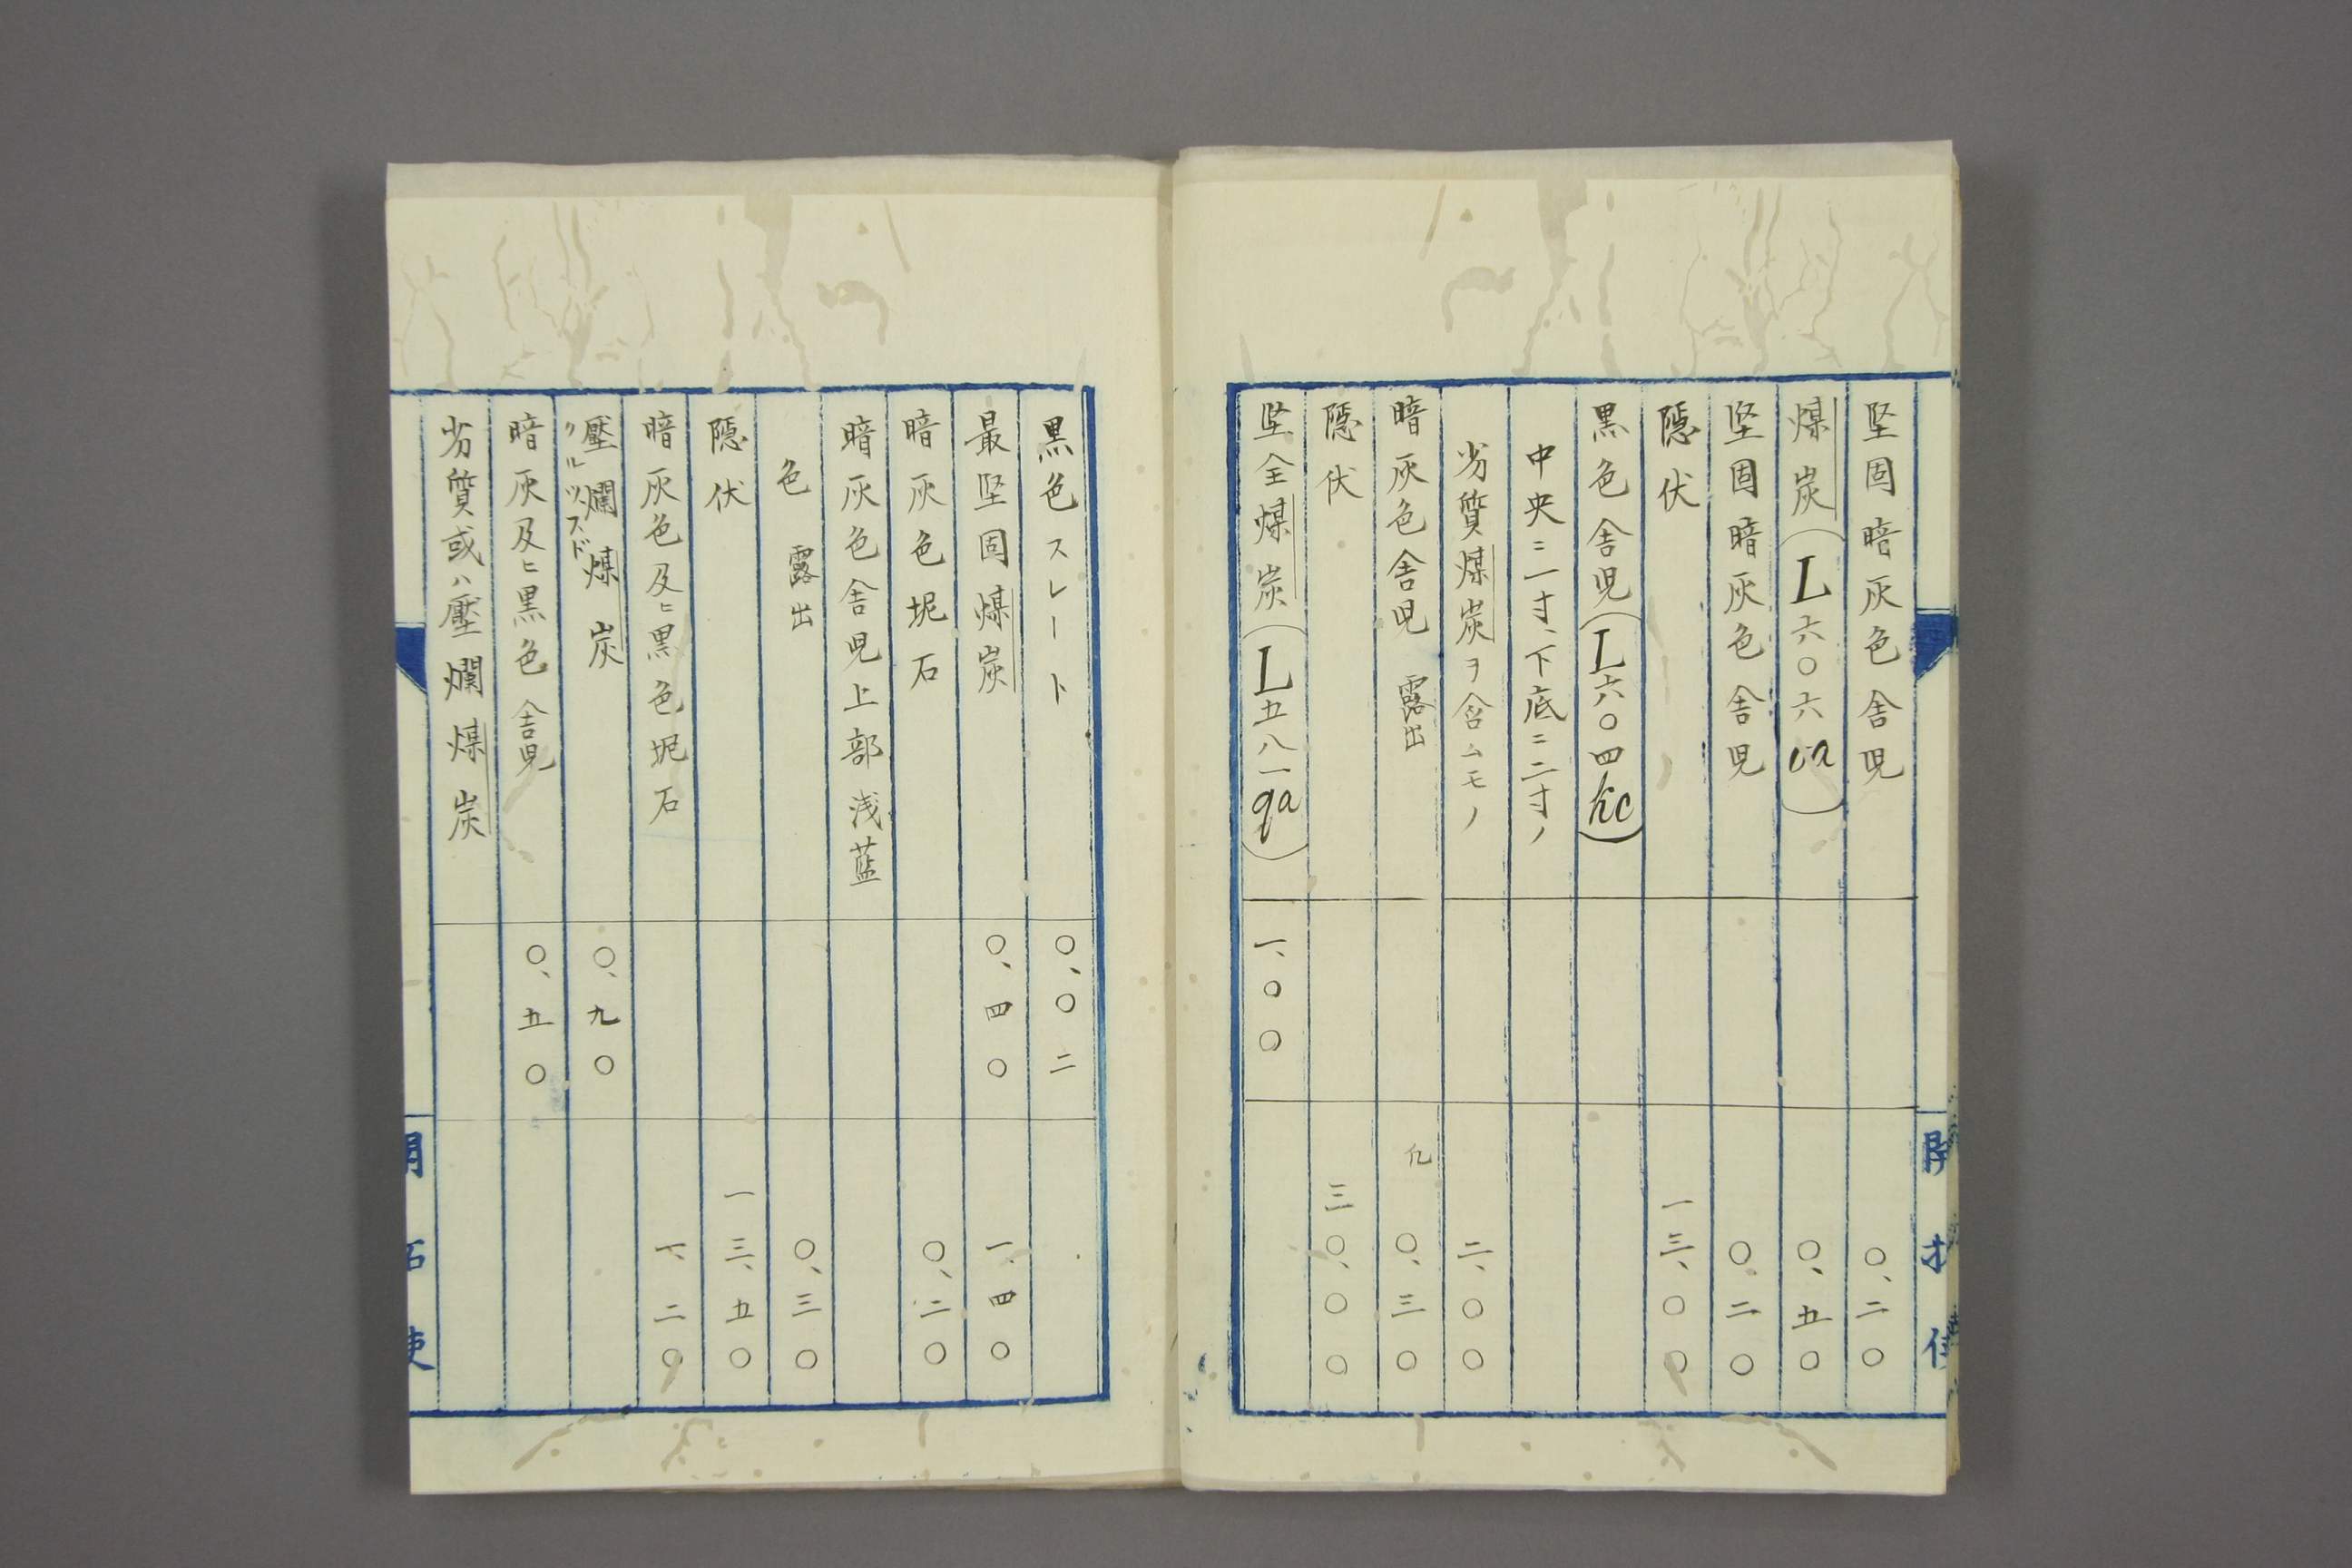 堅固暗灰色舎児 〇、二〇
煤炭(L六〇六ca) 〇、五〇
堅固暗灰色舎児 〇、二〇
隠伏 一三、〇〇
黒色舎児(L六〇四hc)
中央ニ一寸、下底ニ二寸ノ
劣質煤炭ヲ含ムモノ 二、〇〇
暗灰色舎児 露出 凡 〇、三〇
隠伏 三〇、〇〇
堅全煤炭(L五八一qa) 一、〇〇
開拓使
黒色スレート 〇、〇二
最堅固煤炭 〇、四〇 一、四〇
暗灰色坭石 〇、二〇
暗灰色舎児上部浅藍
色 露出 〇、三〇
隠伏 一三、五〇
暗灰色及ヒ黒色坭石 一、二〇
壓爛煤炭 〇、九〇
クルツスド
暗灰及ヒ黒色舎児 〇、五〇
劣質或ハ壓爛煤炭
開拓使